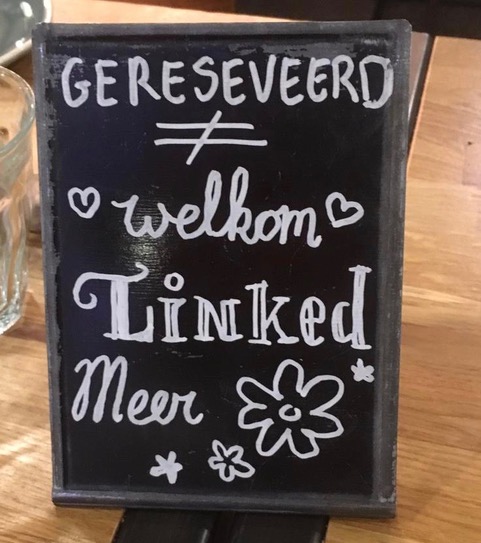 GERESEVEERD
≠
♡ welkom ♡
Linked
Meer